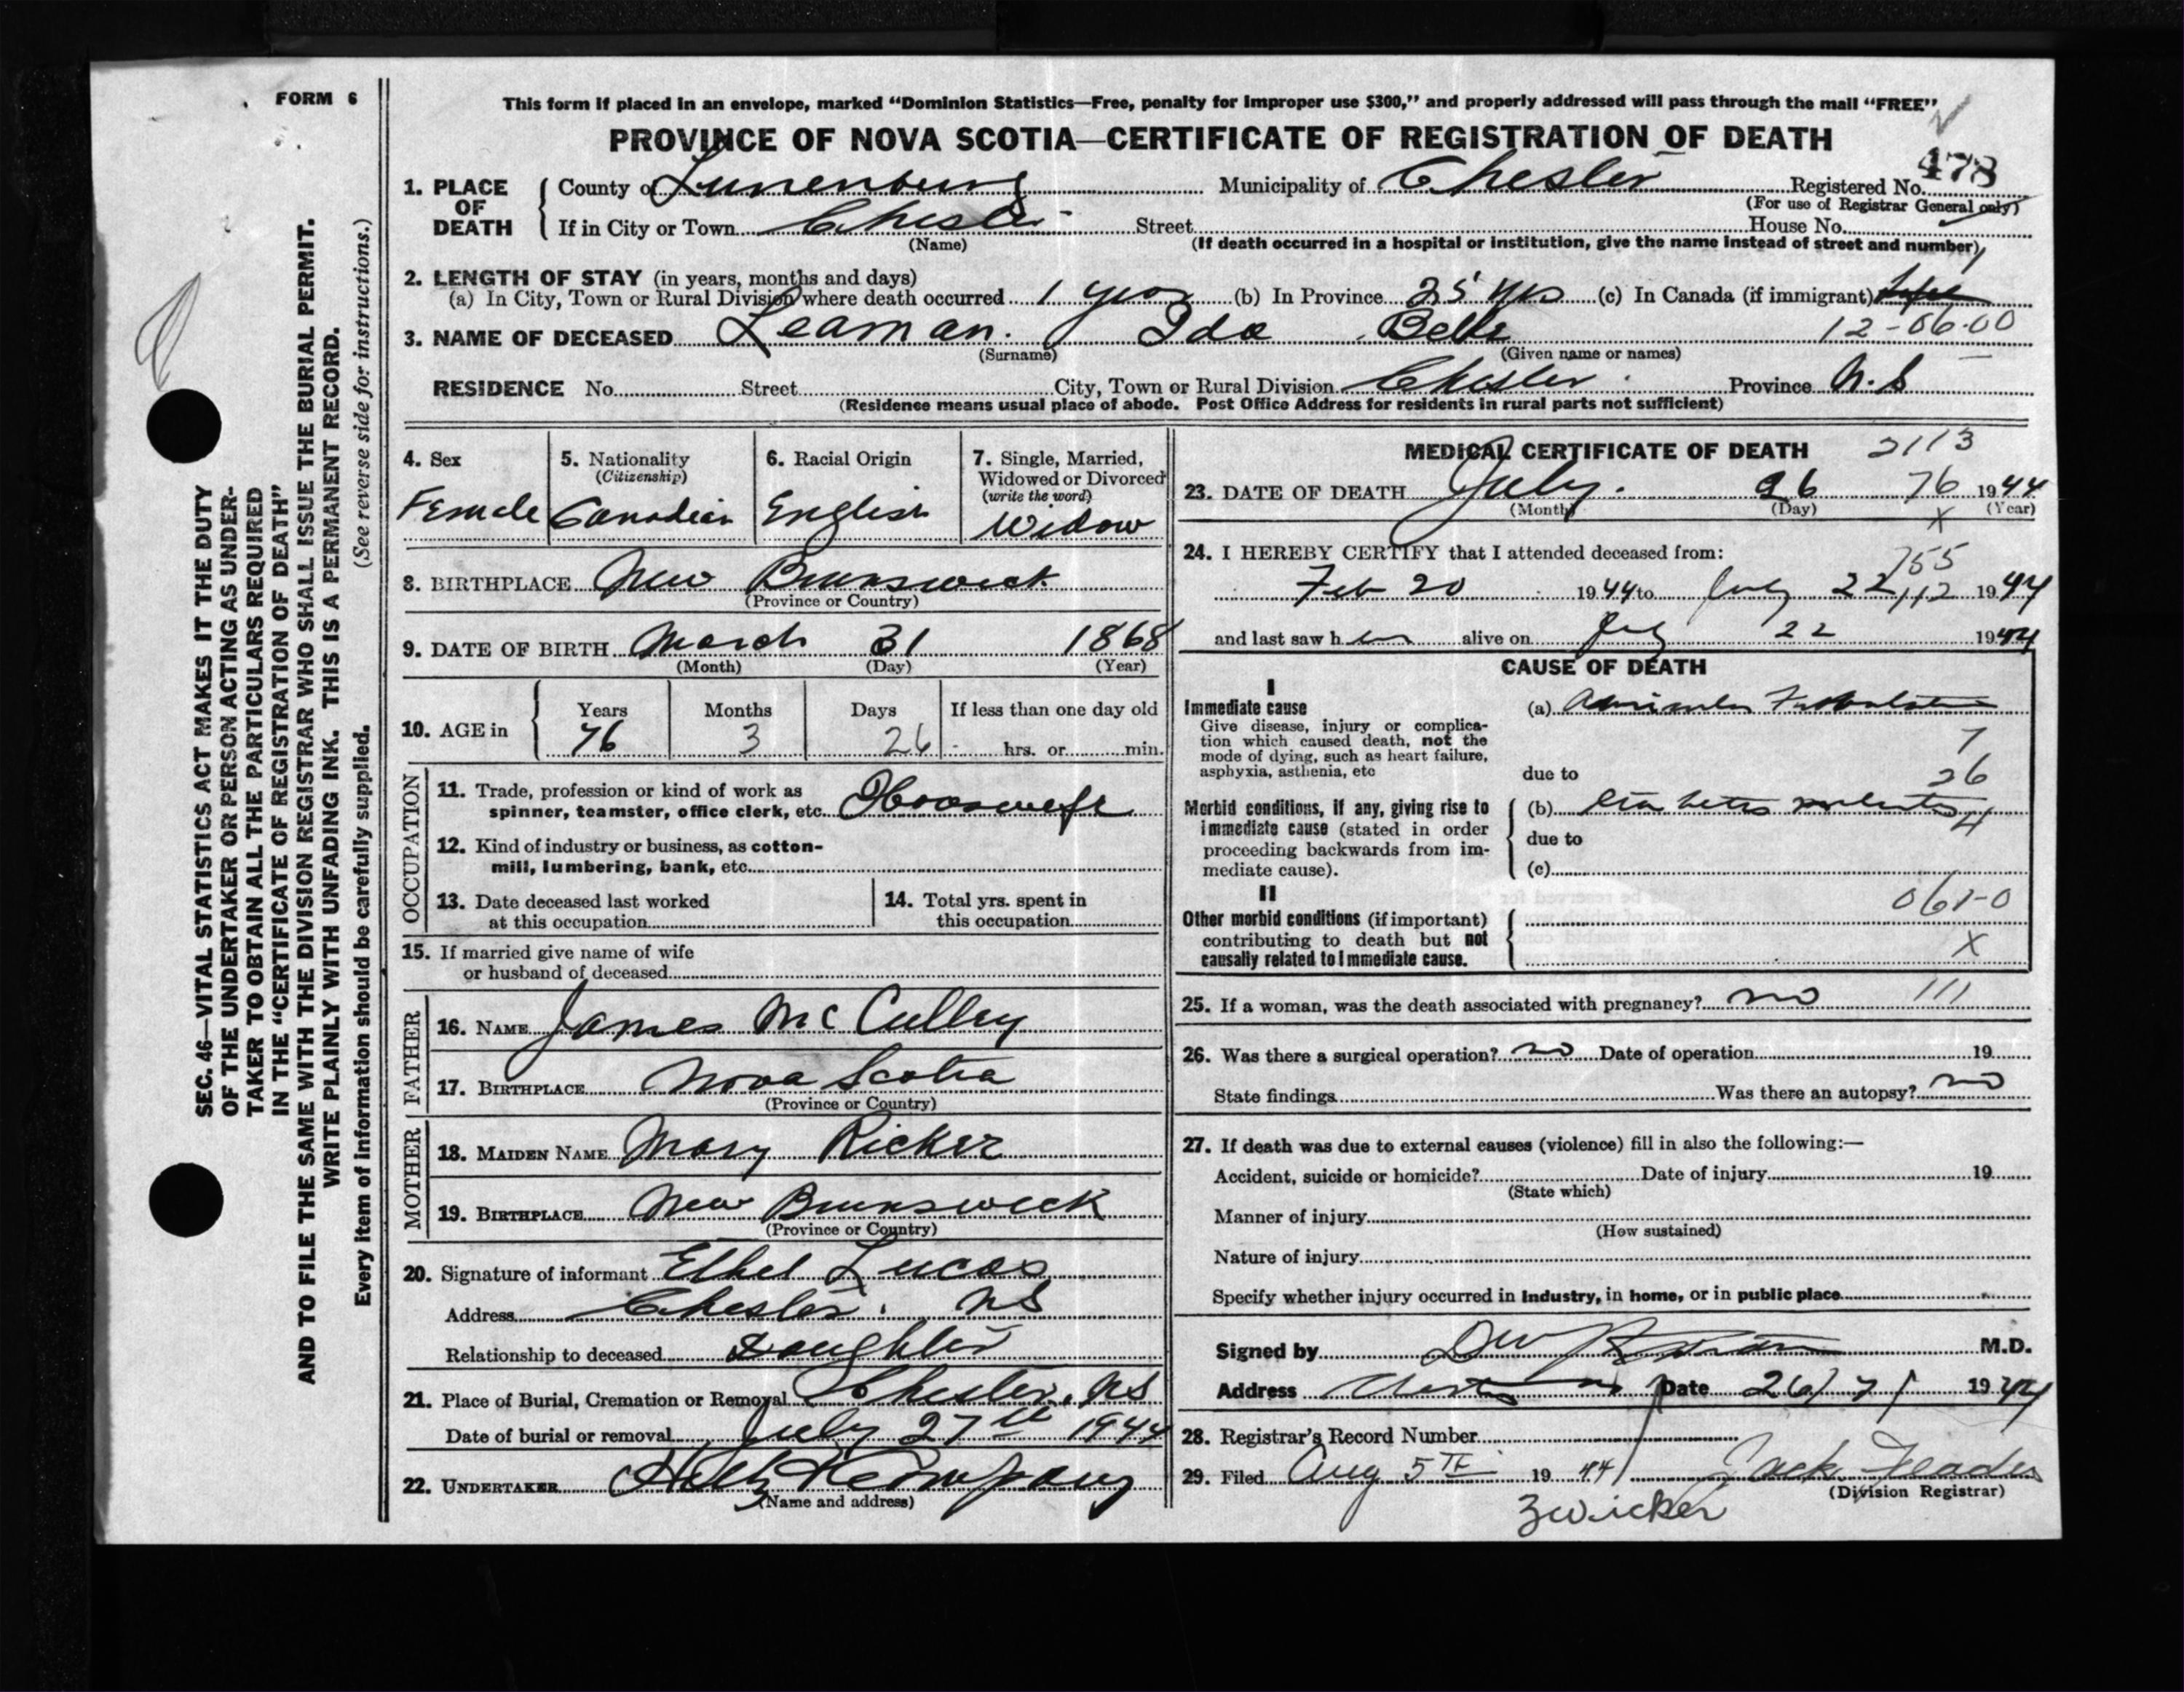 FORM 6
This form if placed in an envelope, marked "Dominion Statistics—Free, penalty for improper use $300," and properly addressed will pass through the mail "FREE"
PROVINCE OF NOVA SCOTIA—CERTIFICATE OF REGISTRATION OF DEATH
1. PLACE OF DEATH
County of Lunenburg Municipality of Chester Registered No. 478
(For use of Registrar General only)
If in City or Town Chester Street House No.
(Name) (If death occurred in a hospital or institution, give the name instead of street and number)
2. LENGTH OF STAY (in years, months and days)
(a) In City, Town or Rural Division where death occurred 1 year (b) In Province 25 yrs (c) In Canada (if immigrant)
3. NAME OF DECEASED Leaman. Ida Belle 12-06-00
(Surname) (Given name or names)
RESIDENCE No. Street City, Town or Rural Division Chester Province N.S
(Residence means usual place of abode. Post Office Address for residents in rural parts not sufficient)
4. Sex
Female
5. Nationality
(Citizenship)
Canadian
6. Racial Origin
English
7. Single, Married,
Widowed or Divorced
(write the word)
Widow
8. BIRTHPLACE New Brunswick
(Province or Country)
9. DATE OF BIRTH March 31 1868
(Month) (Day) (Year)
10. AGE in
Years Months Days If less than one day old
76 3 26 hrs. or min.
OCCUPATION
11. Trade, profession or kind of work as
spinner, teamster, office clerk, etc. Housewife
12. Kind of industry or business, as cotton-
mill, lumbering, bank, etc.
13. Date deceased last worked
at this occupation
14. Total yrs. spent in
this occupation
15. If married give name of wife
or husband of deceased
FATHER
16. NAME James McCulley
17. BIRTHPLACE Nova Scotia
(Province or Country)
MOTHER
18. MAIDEN NAME Mary Ricker
19. BIRTHPLACE New Brunswick
(Province or Country)
20. Signature of informant Ethel Lucas
Address Chester. NS
Relationship to deceased Daughter
21. Place of Burial, Cremation or Removal Chester, NS
Date of burial or removal July 27th 1944
22. UNDERTAKER Company
(Name and address)
MEDICAL CERTIFICATE OF DEATH 2113
23. DATE OF DEATH July. 26 76 1944
(Month) (Day) (Year)
X
24. I HEREBY CERTIFY that I attended deceased from:
155
Feb 20 1944 to July 22 112 1944
and last saw her alive on July 22 1944
CAUSE OF DEATH
I
Immediate cause
Give disease, injury or complica-
tion which caused death, not the
mode of dying, such as heart failure,
asphyxia, asthenia, etc
(a) Auricular
7
due to 26
Morbid conditions, if any, giving rise to
immediate cause (stated in order
proceeding backwards from im-
mediate cause).
(b) Diabetes mellitus 4
due to
(c)
II
Other morbid conditions (if important)
contributing to death but not
causally related to immediate cause.
061-0
X
25. If a woman, was the death associated with pregnancy? no 111
26. Was there a surgical operation? no Date of operation 19
State findings Was there an autopsy? no
27. If death was due to external causes (violence) fill in also the following:—
Accident, suicide or homicide? Date of injury 19
(State which)
Manner of injury
(How sustained)
Nature of injury
Specify whether injury occurred in industry, in home, or in public place
Signed by M.D.
Address Date 26/7/ 1944
28. Registrar's Record Number
29. Filed Aug 5TH 1944 Jack
(Division Registrar)
Zwicker
SEC. 46—VITAL STATISTICS ACT MAKES IT THE DUTY
OF THE UNDERTAKER OR PERSON ACTING AS UNDER-
TAKER TO OBTAIN ALL THE PARTICULARS REQUIRED
IN THE "CERTIFICATE OF REGISTRATION OF DEATH"
AND TO FILE THE SAME WITH THE DIVISION REGISTRAR WHO SHALL ISSUE THE BURIAL PERMIT.
WRITE PLAINLY WITH UNFADING INK. THIS IS A PERMANENT RECORD.
Every item of information should be carefully supplied. (See reverse side for instructions.)